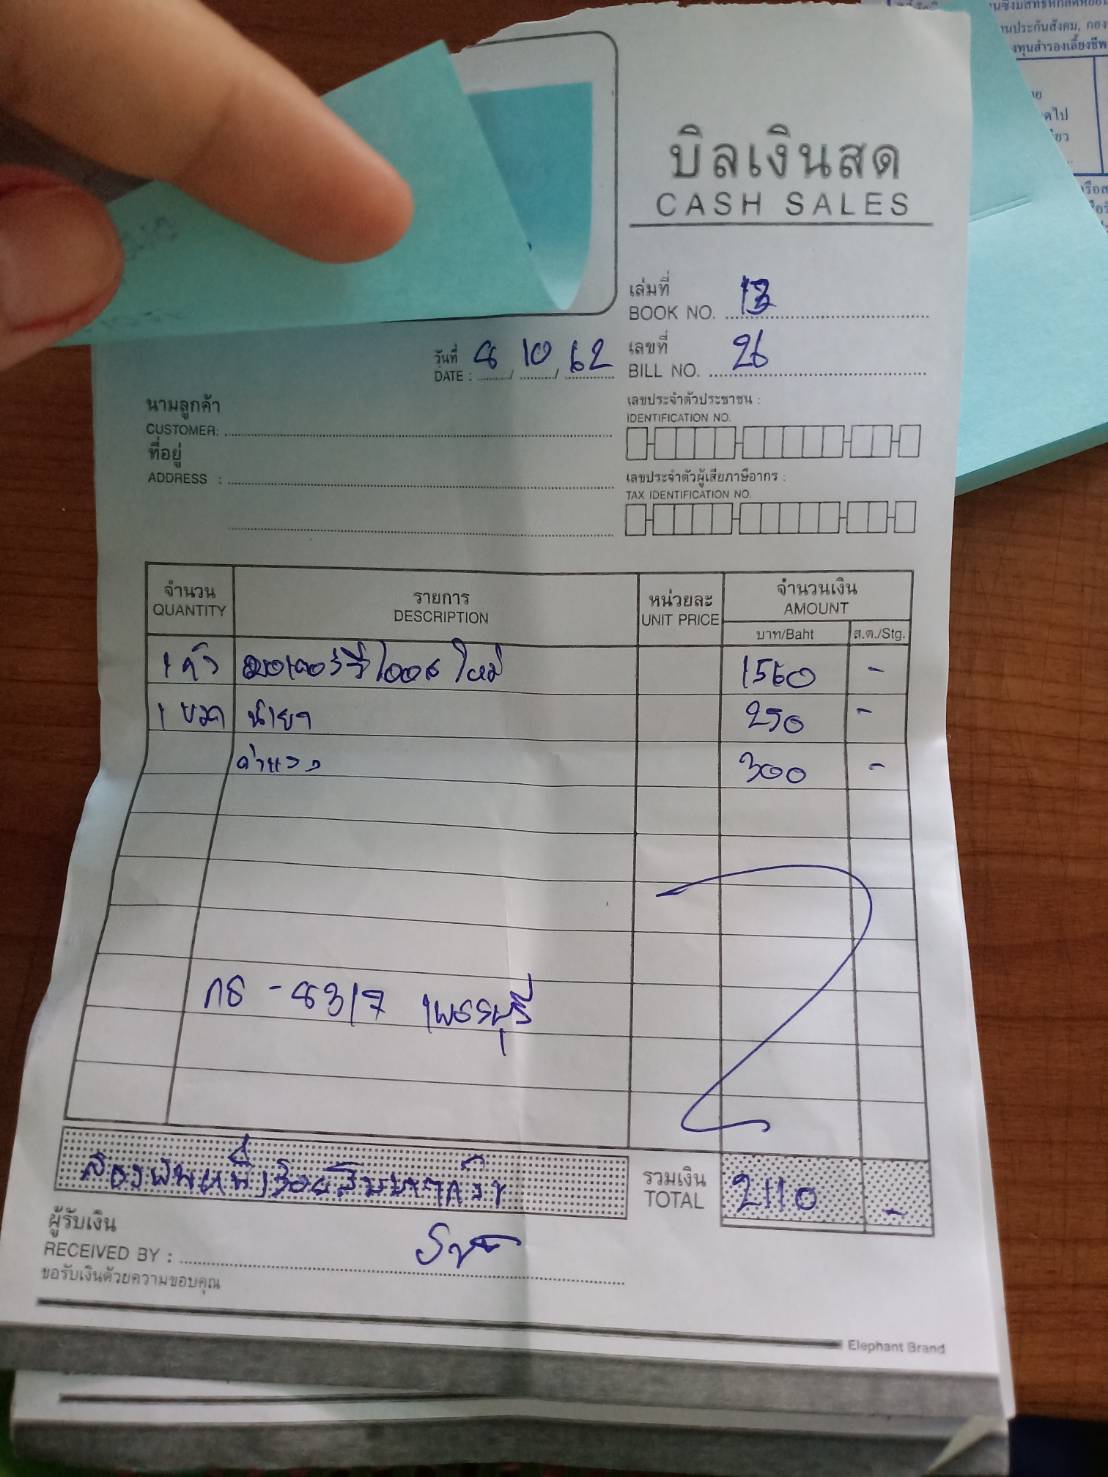 บิลเงินสด
CASH SALES
เล่มที่
BOOK NO. 13
วันที่
DATE : 8 / 10 / 62
เลขที่
BILL NO. 26
นามลูกค้า
CUSTOMER:
ที่อยู่
ADDRESS :
เลขประจำตัวประชาชน :
IDENTIFICATION NO.
เลขประจำตัวผู้เสียภาษีอากร :
TAX IDENTIFICATION NO.
จำนวน รายการ หน่วยละ จำนวนเงิน
QUANTITY DESCRIPTION UNIT PRICE AMOUNT
บาท/Baht ส.ต./Stg.
1 ตัว มอเตอร์ ใหม่ 1560 -
1 ขวด น้ำยา 250 -
ค่าแรง 300 -
กธ - 83 เพชรบุรี
สองพันหนึ่งร้อยสิบบาทถ้วน
รวมเงิน
TOTAL 2110 -
ผู้รับเงิน
RECEIVED BY :
ขอรับเงินด้วยความขอบคุณ
Elephant Brand